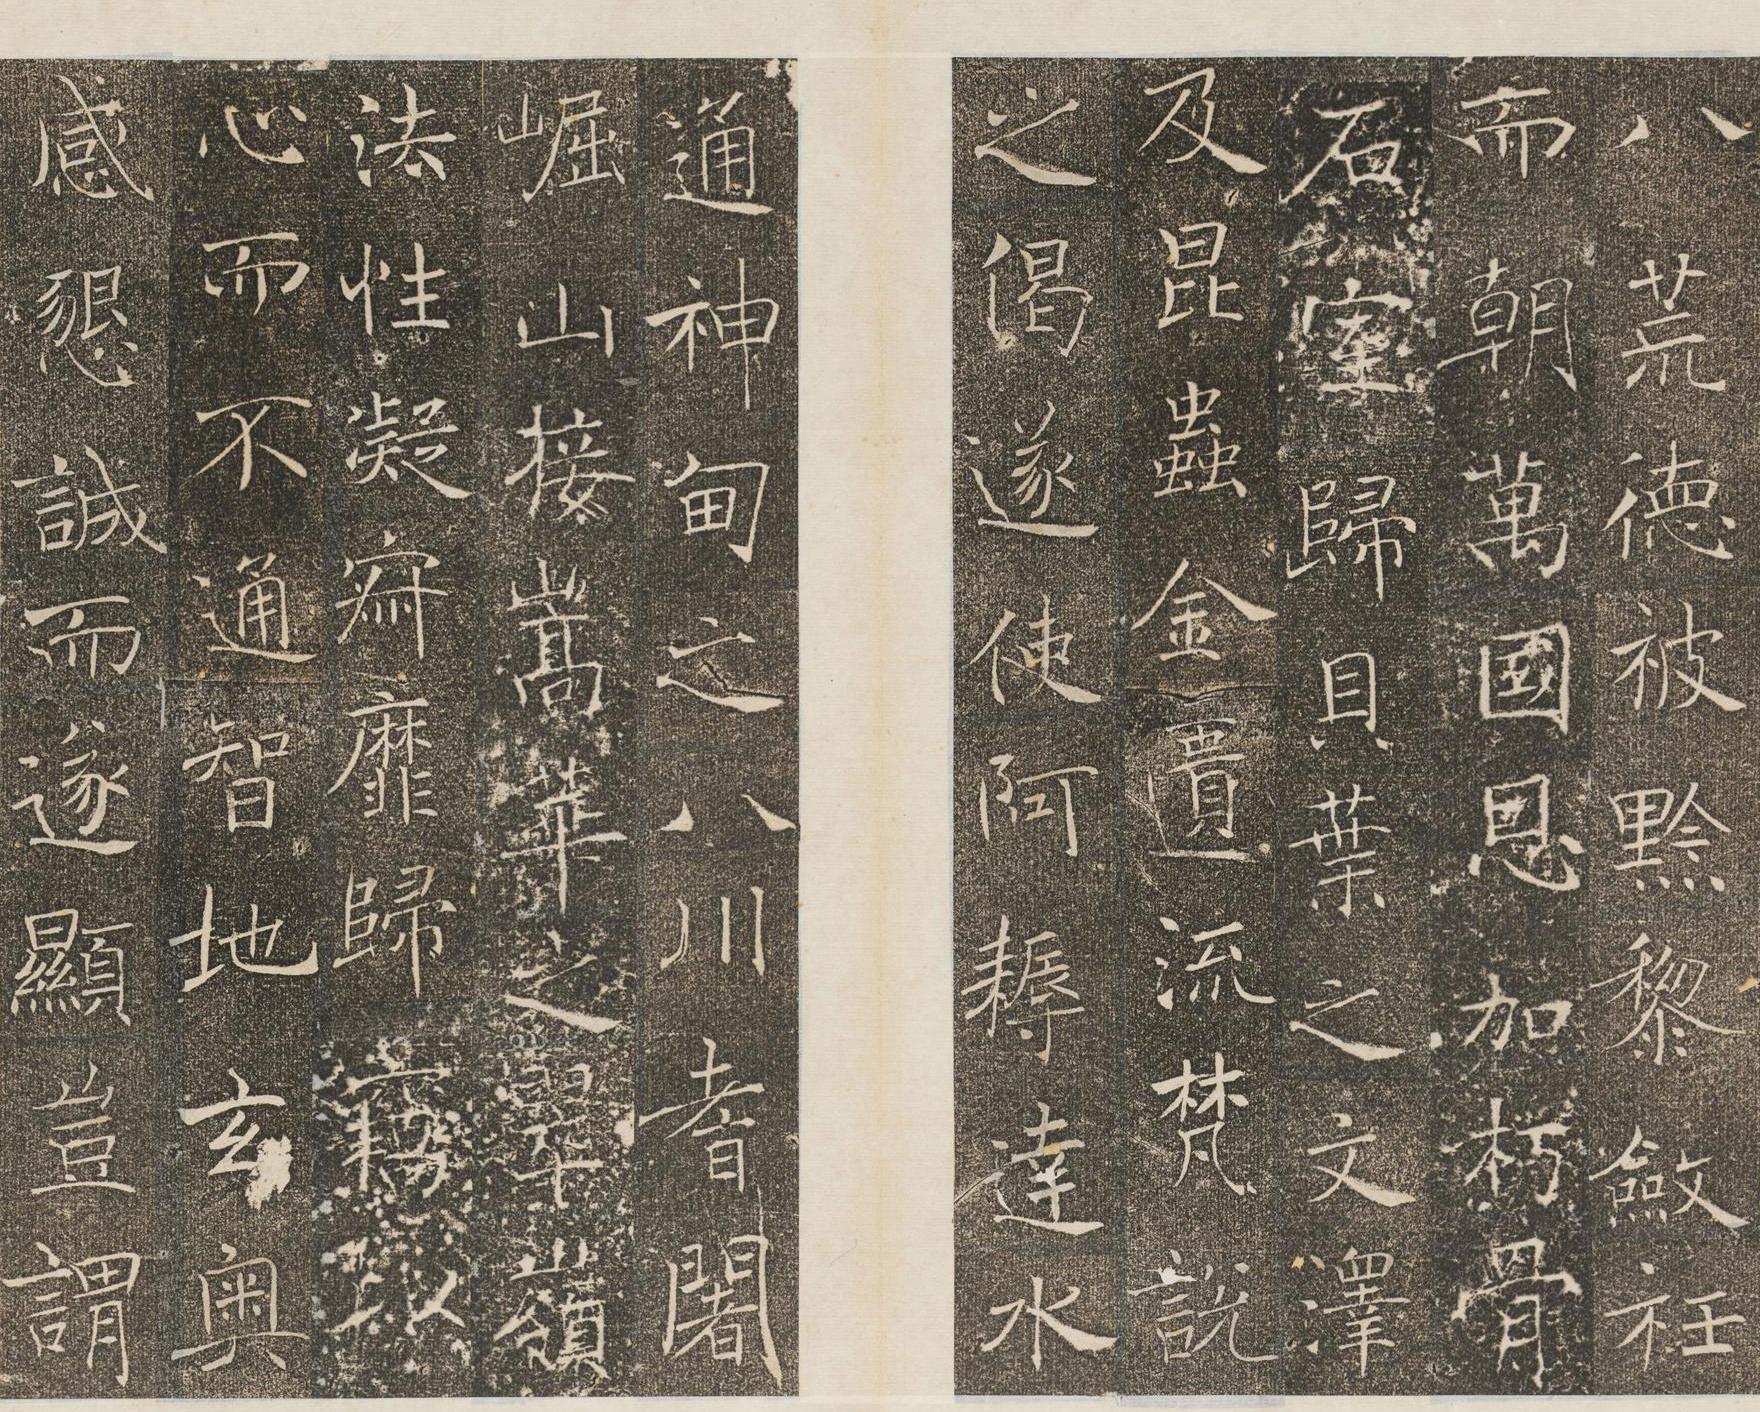 八荒德被黔黎斂衽
而朝萬國恩加朽骨
石室歸貝葉之文澤
及昆蟲金匱流梵說
之偈遂使阿耨達水
通神甸之八川耆闍
崛山接嵩華之翠嶺
法性凝寂靡歸心以
心而不通智地玄奧
感懇誠而遂顯豈謂